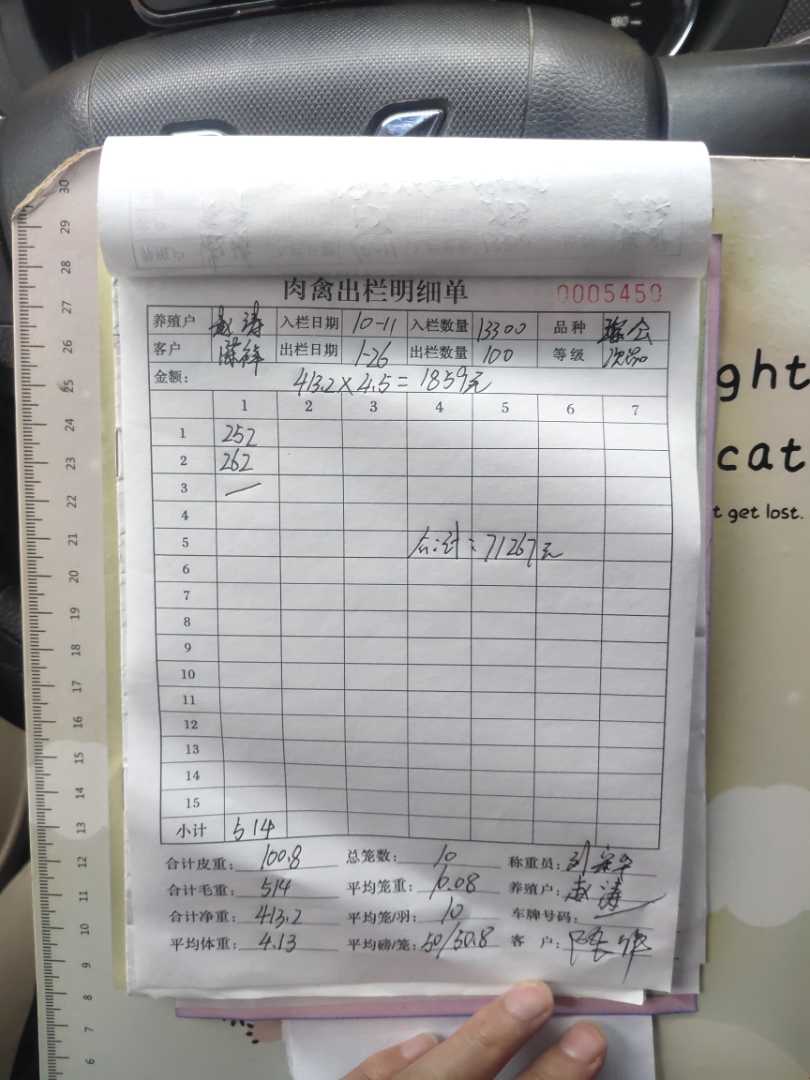 肉禽出栏明细单 0005450
养殖户 赵涛 入栏日期 10-11 入栏数量 13300 品种
客户 出栏日期 1-26 出栏数量 100 等级 次品
金额: 413.2×4.5=1859元
1 2 3 4 5 6 7
1 252
2 262
3 —
4
5 合计:71267元
6
7
8
9
10
11
12
13
14
15
小计 514
合计皮重: 100.8 总笼数: 10 称重员:
合计毛重: 514 平均笼重: 10.08 养殖户: 赵涛
合计净重: 413.2 平均笼/羽: 10 车牌号码:
平均体重: 4.13 平均磅/笼: 50/50.8 客户:
ght
cat
t get lost.
30
29
28
27
26
25
24
23
22
21
20
19
18
17
16
15
14
13
12
11
10
9
8
7
6